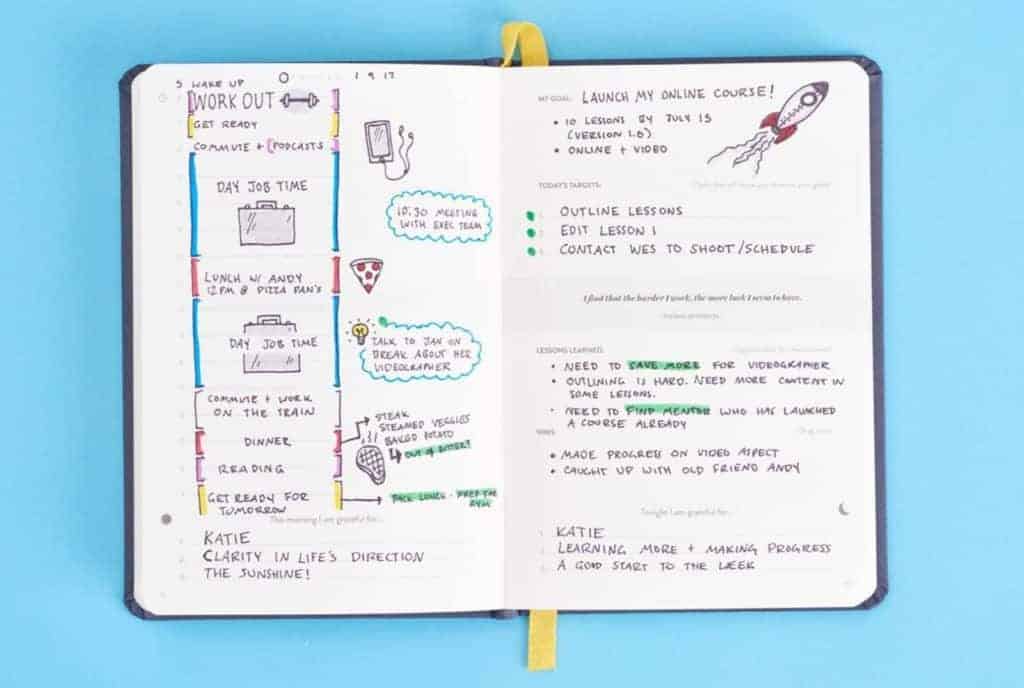 5 WAKE UP
1 9 17
WORK OUT
GET READY
COMMUTE + PODCASTS
DAY JOB TIME
10:30 MEETING
WITH EXEC TEAM
LUNCH W/ ANDY
12PM @ PIZZA PAN'S
DAY JOB TIME
TALK TO JAN ON
BREAK ABOUT HER
VIDEOGRAPHER
COMMUTE + WORK
ON THE TRAIN
DINNER
STEAK
STEAMED VEGGIES
BAKED POTATO
OUT OF BUTTER?
READING
GET READY FOR
TOMORROW
PACK LUNCH - PREP FOR
GYM
This morning I am grateful for...
KATIE
CLARITY IN LIFE'S DIRECTION
THE SUNSHINE!
MY GOAL: LAUNCH MY ONLINE COURSE!
• 10 LESSONS BY JULY 15
(VERSION 1.0)
• ONLINE + VIDEO
TODAY'S TARGETS:
OUTLINE LESSONS
EDIT LESSON 1
CONTACT WES TO SHOOT/SCHEDULE
I find that the harder I work, the more luck I seem to have.
LESSONS LEARNED:
• NEED TO SAVE MORE FOR VIDEOGRAPHER
• OUTLINING IS HARD. NEED MORE CONTENT IN
SOME LESSONS.
• NEED TO FIND MENTOR WHO HAS LAUNCHED
A COURSE ALREADY
WINS:
• MADE PROGRESS ON VIDEO ASPECT
• CAUGHT UP WITH OLD FRIEND ANDY
Tonight I am grateful for...
KATIE
LEARNING MORE + MAKING PROGRESS
A GOOD START TO THE WEEK